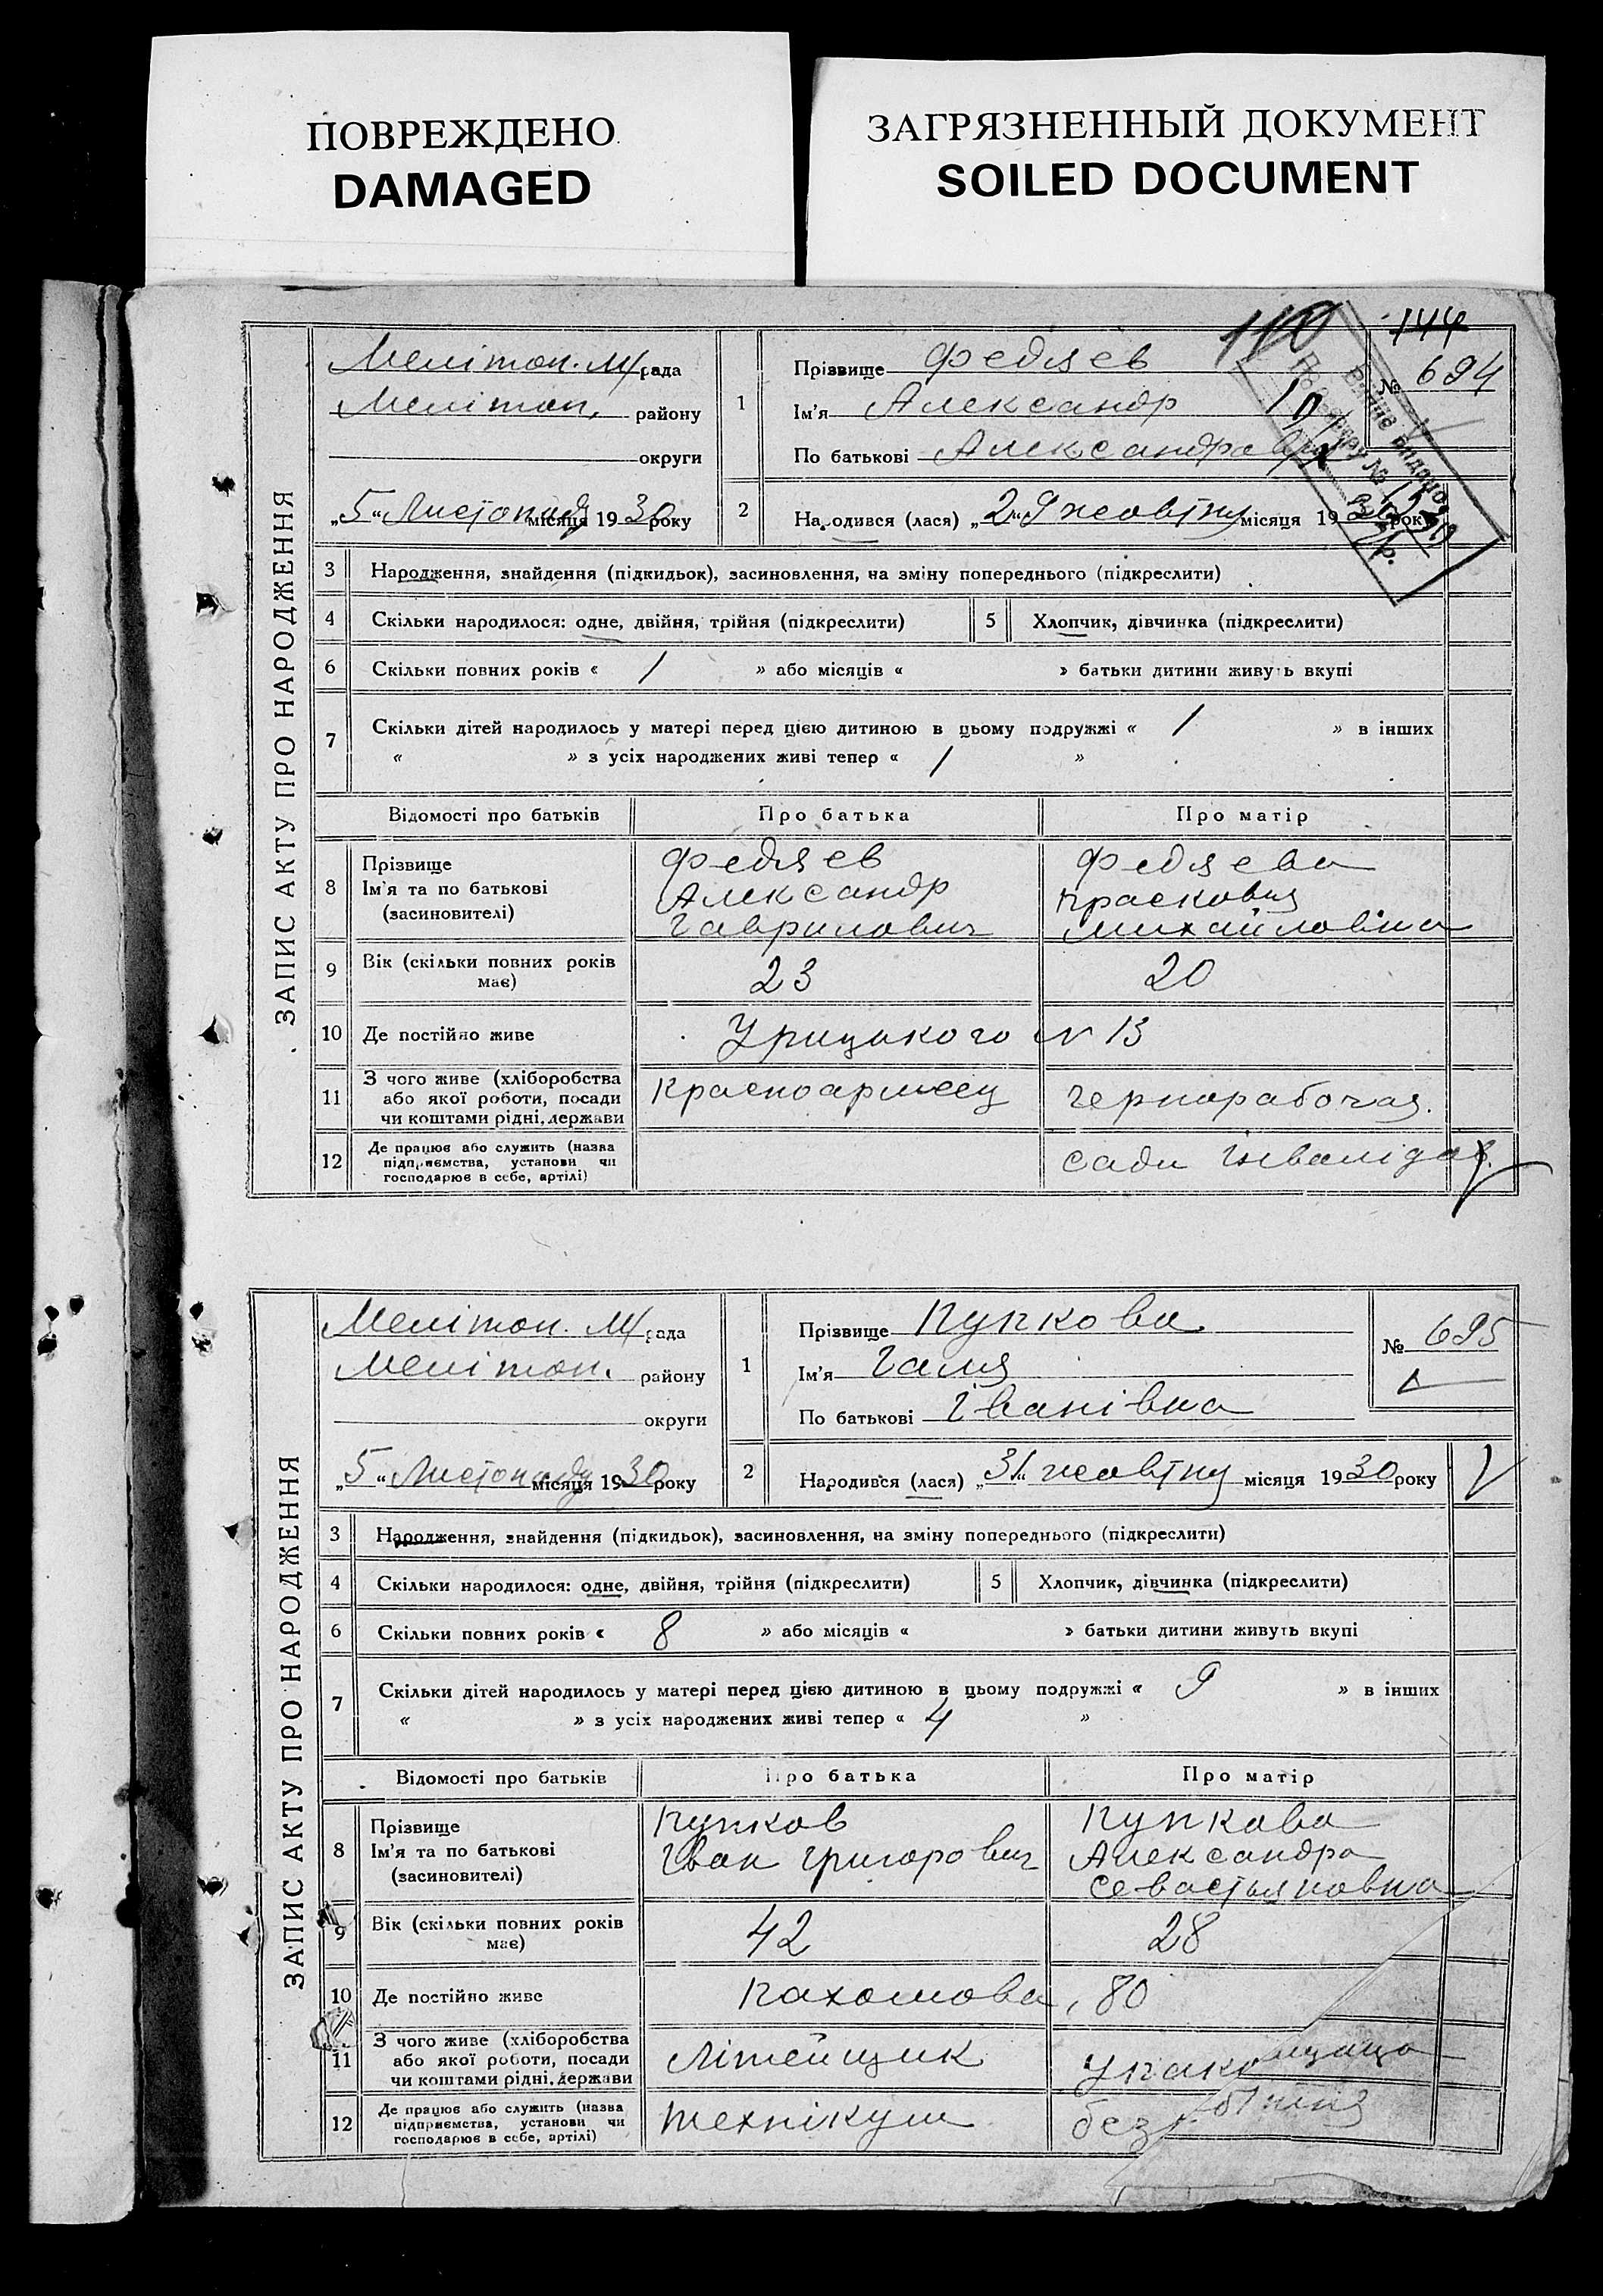 ПОВРЕЖДЕНО
DAMAGED
ЗАГРЯЗНЕННЫЙ ДОКУМЕНТ
SOILED DOCUMENT
110
144
ЗАПИС АКТУ ПРО НАРОДЖЕННЯ
Мелітоп. М/рада
Мелітоп. району
округи
„5“ Листопаду місяця 1930 року
1
Прізвище Федяев
Ім'я Александр
По батькові Александрович
№ 694
2
Народився (лася) „29 жовтну місяця 1930 року
3 Народження, знайдення (підкидьок), засиновлення, на зміну попереднього (підкреслити)
4 Скільки народилося: одне, двійня, трійня (підкреслити) 5 Хлопчик, дівчинка (підкреслити)
6 Скільки повних років « 1 » або місяців « » батьки дитини живуть вкупі
7 Скільки дітей народилось у матері перед цією дитиною в цьому подружжі « 1 » в інших
« » з усіх народжених живі тепер « 1 »
Відомості про батьків Про батька Про матір
8 Прізвище
Ім'я та по батькові
(засиновителі)
Федяев
Александр
Гаврилович
Федяева
Прасковия
Михайловна
9 Вік (скільки повних років має) 23 20
10 Де постійно живе Урицького № 13
11 З чого живе (хліборобства
або якої роботи, посади
чи коштами рідні, держави
Красноармеец
Чернорабочая.
12 Де працює або служить (назва
підприємства, установи чи
господарює в себе, артілі)
сади Інвалідов.
ЗАПИС АКТУ ПРО НАРОДЖЕННЯ
Мелітоп. М/рада
Мелітоп. району
округи
„5“ Листопаду місяця 1930 року
1
Прізвище Пупкова
Ім'я Галя
По батькові Іванівна
№ 695
2
Народився (лася) „31“ жовтну місяця 1930 року
3 Народження, знайдення (підкидьок), засиновлення, на зміну попереднього (підкреслити)
4 Скільки народилося: одне, двійня, трійня (підкреслити) 5 Хлопчик, дівчинка (підкреслити)
6 Скільки повних років « 8 » або місяців « » батьки дитини живуть вкупі
7 Скільки дітей народилось у матері перед цією дитиною в цьому подружжі « 9 » в інших
« » з усіх народжених живі тепер « 4 »
Відомості про батьків Про батька Про матір
8 Прізвище
Ім'я та по батькові
(засиновителі)
Пупков
Іван Григорович
Пупкова
Александра
Севастьяновна
9 Вік (скільки повних років має) 42 28
10 Де постійно живе Пахомова, 80
11 З чого живе (хліборобства
або якої роботи, посади
чи коштами рідні, держави
Літейщик
12 Де працює або служить (назва
підприємства, установи чи
господарює в себе, артілі)
Технікум